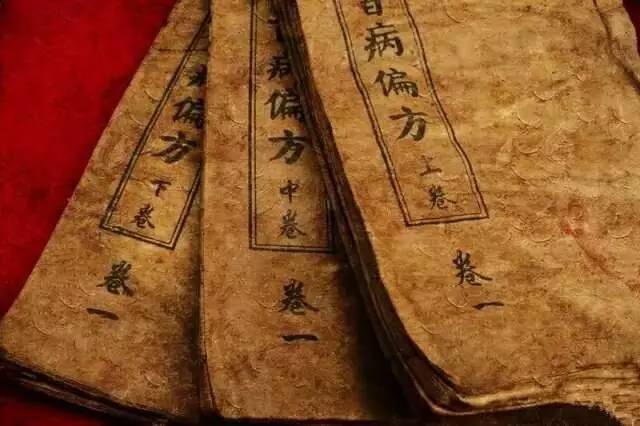 病偏方
上卷
卷一
病偏方
中卷
卷一
偏方
下卷
卷一